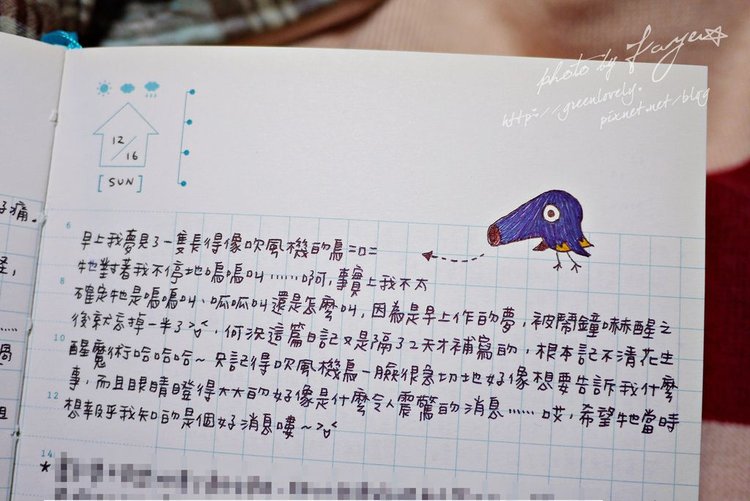 photo by Faye☆
http://greenlovely.
pixnet.net/blog
12/16
[SUN]
6
早上我夢見了一隻長得像吹風機的鳥=口=
牠對著我不停地嗚嗚叫……啊,事實上我不太
8
不確定牠是嗚嗚叫、呱呱叫還是怎麼叫,因為是早上作的夢,被鬧鐘嚇醒之
後就忘掉一半了>"<,何況這篇日記又是隔了2天才補寫的,根本記不清花生
10
醒魔術哈哈哈~只記得吹風機鳥一臉很急切地好像想要告訴我什麼
事,而且眼睛瞪得大大的好像是什麼令人震驚的消息……哎,希望牠當時
12
想報乎我知的是個好消息嘍~>"<
14
★
好痛。